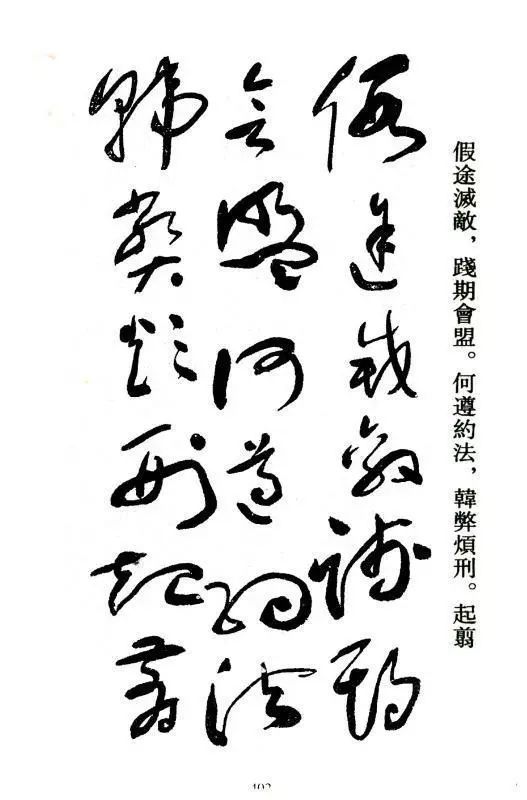 假途滅敵，踐期會盟。何遵約法，韓弊煩刑。起翦
假途滅敵踐期
會盟何遵約法
韓弊煩刑起翦